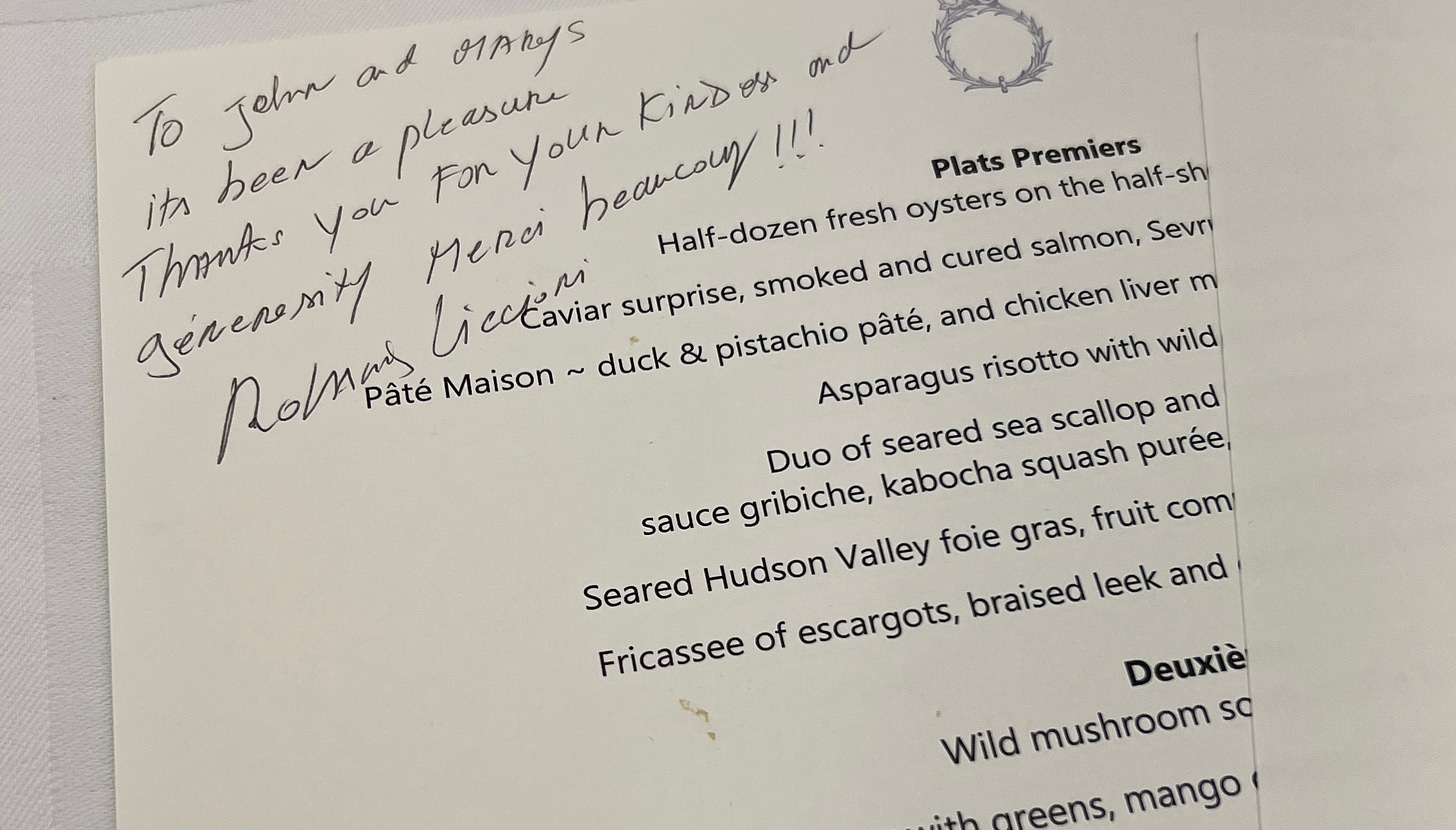 To John and MARYS
its been a pleasure
Thanks you For your KINDess and
génerosity Merci beaucoup !!!
Liccioni
Plats Premiers
Half-dozen fresh oysters on the half-sh
Caviar surprise, smoked and cured salmon, Sevr
Pâté Maison ~ duck & pistachio pâté, and chicken liver m
Asparagus risotto with wild
Duo of seared sea scallop and
sauce gribiche, kabocha squash purée,
Seared Hudson Valley foie gras, fruit com
Fricassee of escargots, braised leek and
Deuxiè
Wild mushroom so
with greens, mango